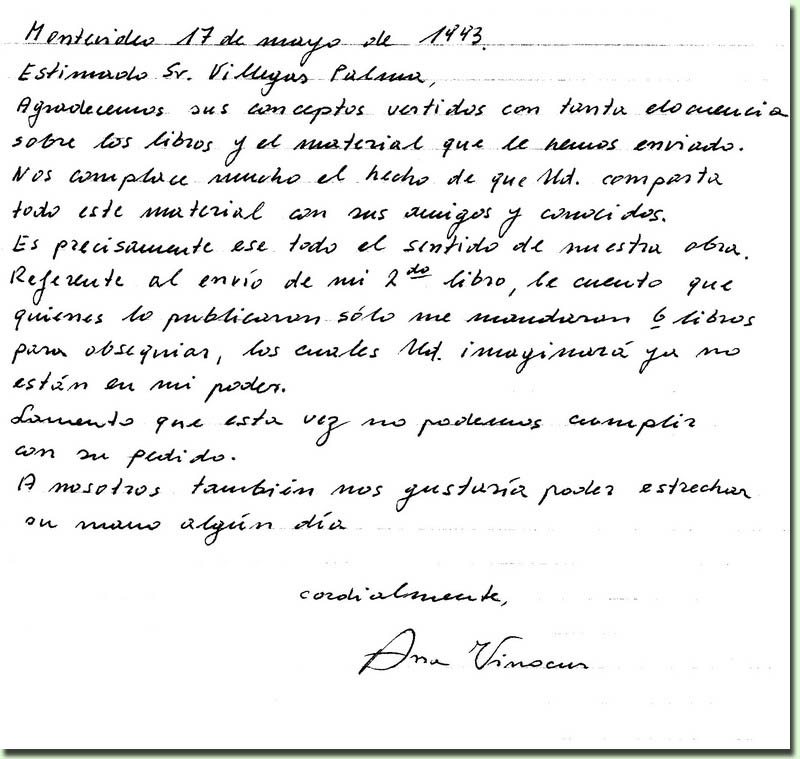 Montevideo 17 de mayo de 1993.
Estimado Sr. Villegas Palma,
Agradecemos sus conceptos vertidos con tanta elocuencia
sobre los libros y el material que le hemos enviado.
Nos complace mucho el hecho de que Ud. comparta
todo este material con sus amigos y conocidos.
Es precisamente ese todo el sentido de nuestra obra.
Referente al envío de mi 2do libro, le cuento que
quienes lo publicaron sólo me mandaron 6 libros
para obsequiar, los cuales Ud. imaginará ya no
están en mi poder.
Lamento que esta vez no podemos cumplir
con su pedido.
A nosotros también nos gustaría poder estrechar
su mano algún día
cordialmente,
Ana Vinocur